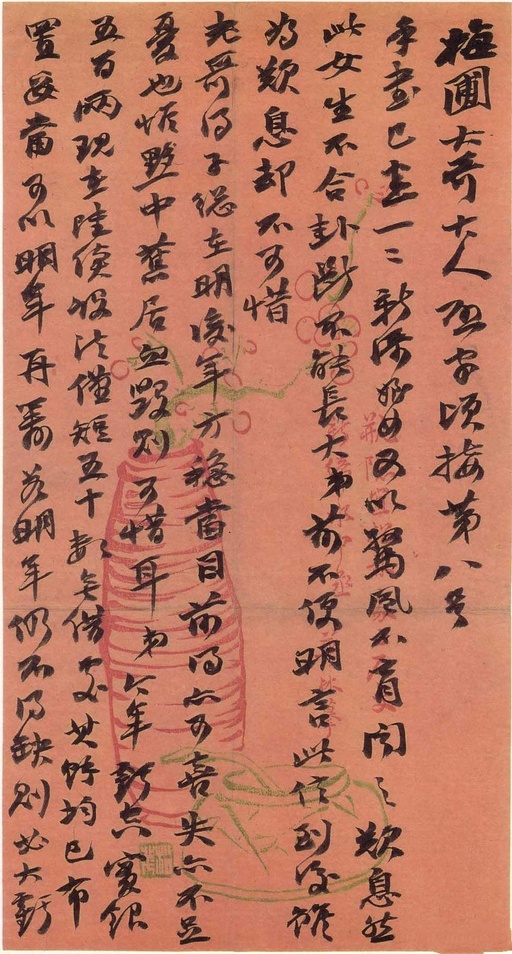 梅圃大哥大人頃接第八号
手書已悉一二新添姪女又以驚風不育聞之歎息然
此女生不合卦斷不能長大弟前不便明言此信到後雖
為歎息却不可惜
老哥得子總在明後年方穩當目前得亦可喜失亦不足
憂也黔中舊居毀則可惜耳弟今年虧空實銀
五百両現在陸續設法僅短五十数無處其餘均已布
置妥當可以明年再籌若明年仍不得缺則必大虧